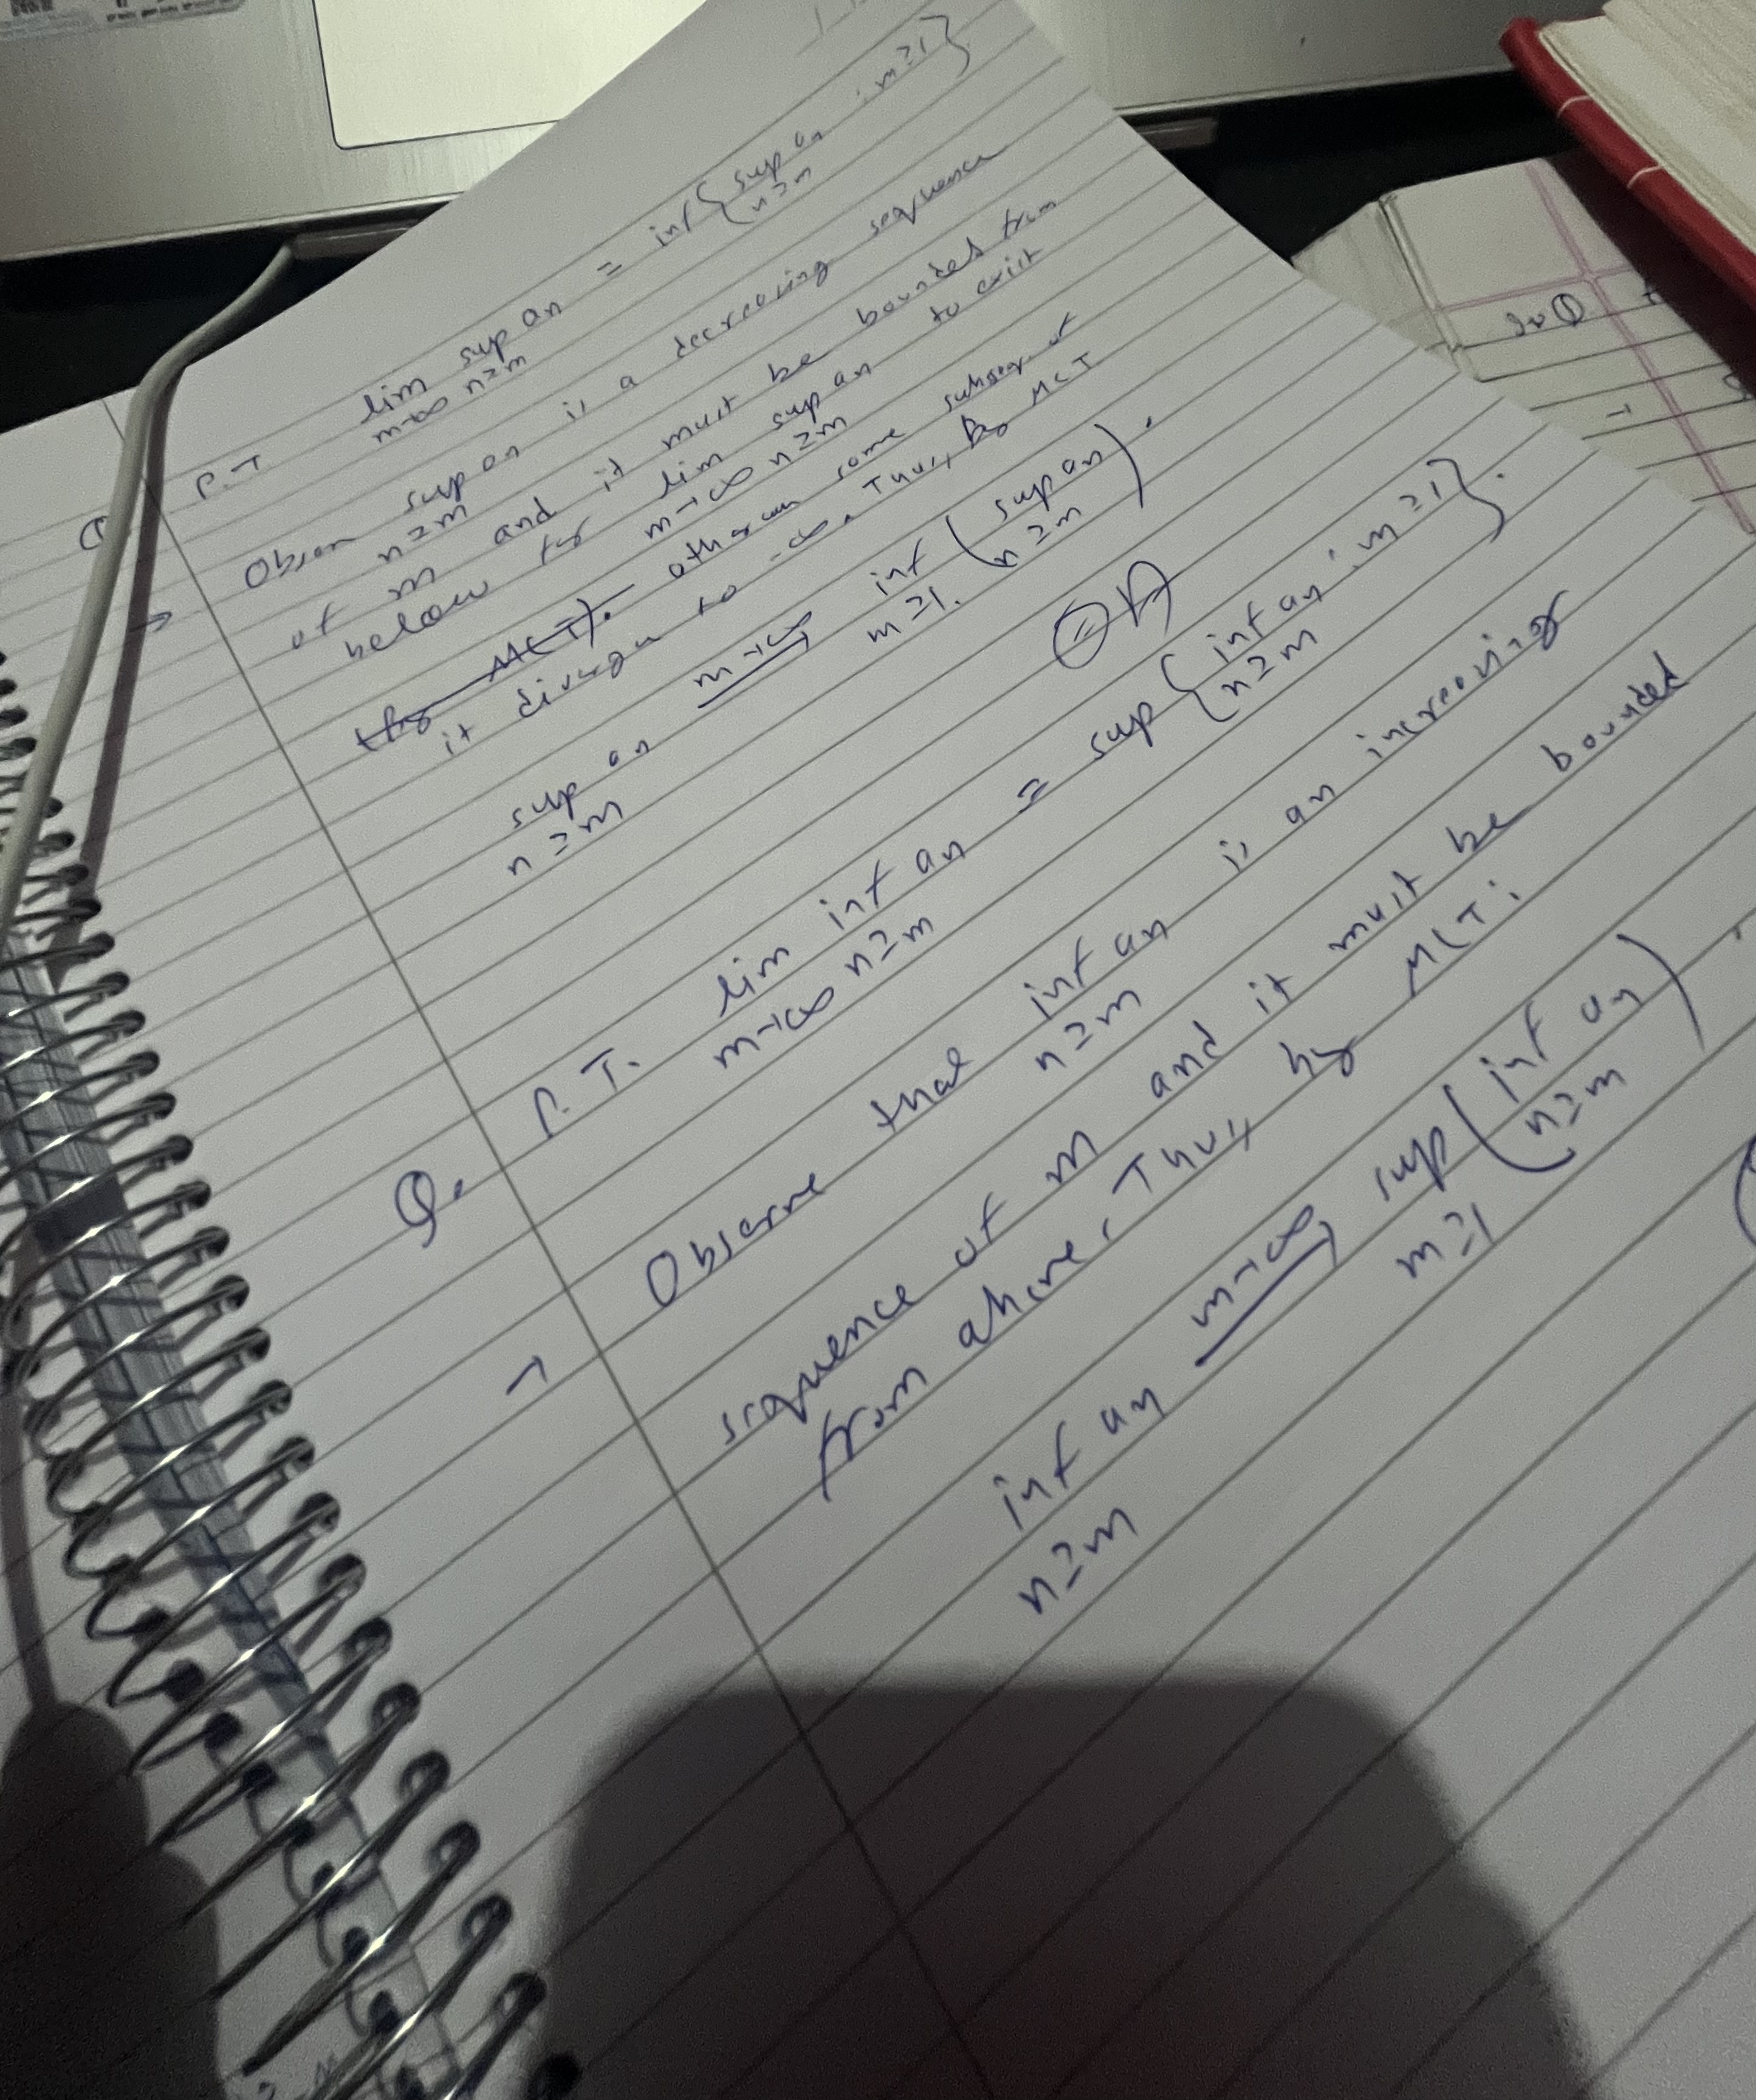 P.T lim sup an = inf { sup an : m ≥ 1 }
m→∞ n≥m n≥m
→ Observe sup an is a decreasing sequence
n≥m
of m and it must be bounded from
below for lim sup an to exist
m→∞ n≥m
otherwise some subseq of
it diverges to -∞. Thus, by MCT
sup an m→∞ inf ( sup an ).
n≥m m≥1. n≥m
Q. P.T. lim inf an = sup { inf an : m ≥ 1 }.
m→∞ n≥m n≥m
→ Observe that inf an is an increasing
n≥m
sequence of m and it must be bounded
from above. Thus, by MCT:
inf an m→∞ sup ( inf an ).
n≥m m≥1 n≥m